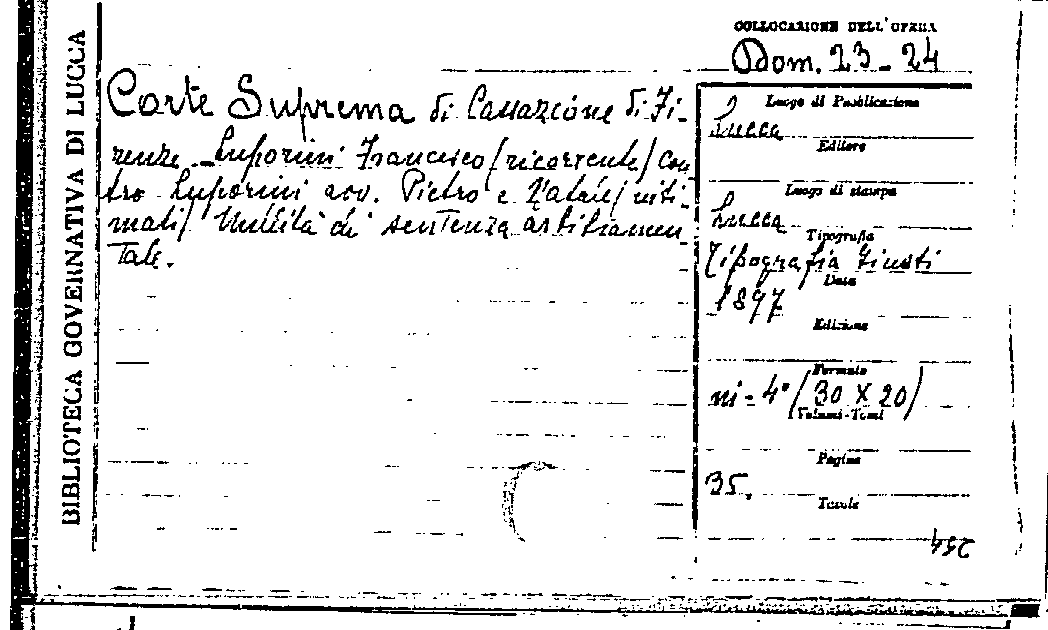 BIBLIOTECA GOVERNATIVA DI LUCCA
COLLOCAZIONE DELL'OPERA
Dom. 23-24
Corte Suprema di Cassazione di Fi-
renze - Luporini Francesco (ricorrente) con
tro Luporini avv. Pietro e Natale (inti-
mati) Nullità di sentenza arbitramen
tale.
Luogo di Pubblicazione
Lucca
Editore
Luogo di stampa
Lucca
Tipografia
Tipografia Giusti
Data
1897
Edizione
Formato
in-4° (30 X 20)
Volumi-Tomi
Pagine
35.
Tavole
254